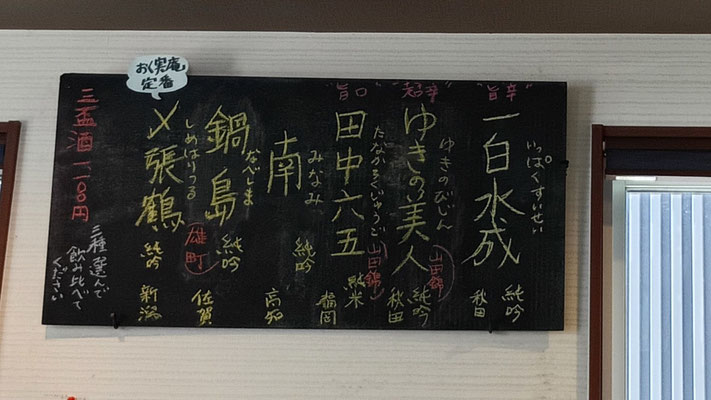 "旨辛"
一白水成
いっぱくすいせい
純吟
秋田
"超辛"
ゆきの美人
ゆきのびじん
山田錦
純吟
秋田
"旨口"
田中六五
たなかろくじゅうご
山田錦
純米
南
みなみ
純吟
高知
鍋島
なべしま
雄町
純吟
佐賀
おく実庵
定番
〆張鶴
しめはりつる
純吟
新潟
三盃酒 一一〇〇円
三種選んで
飲み比べて
ください